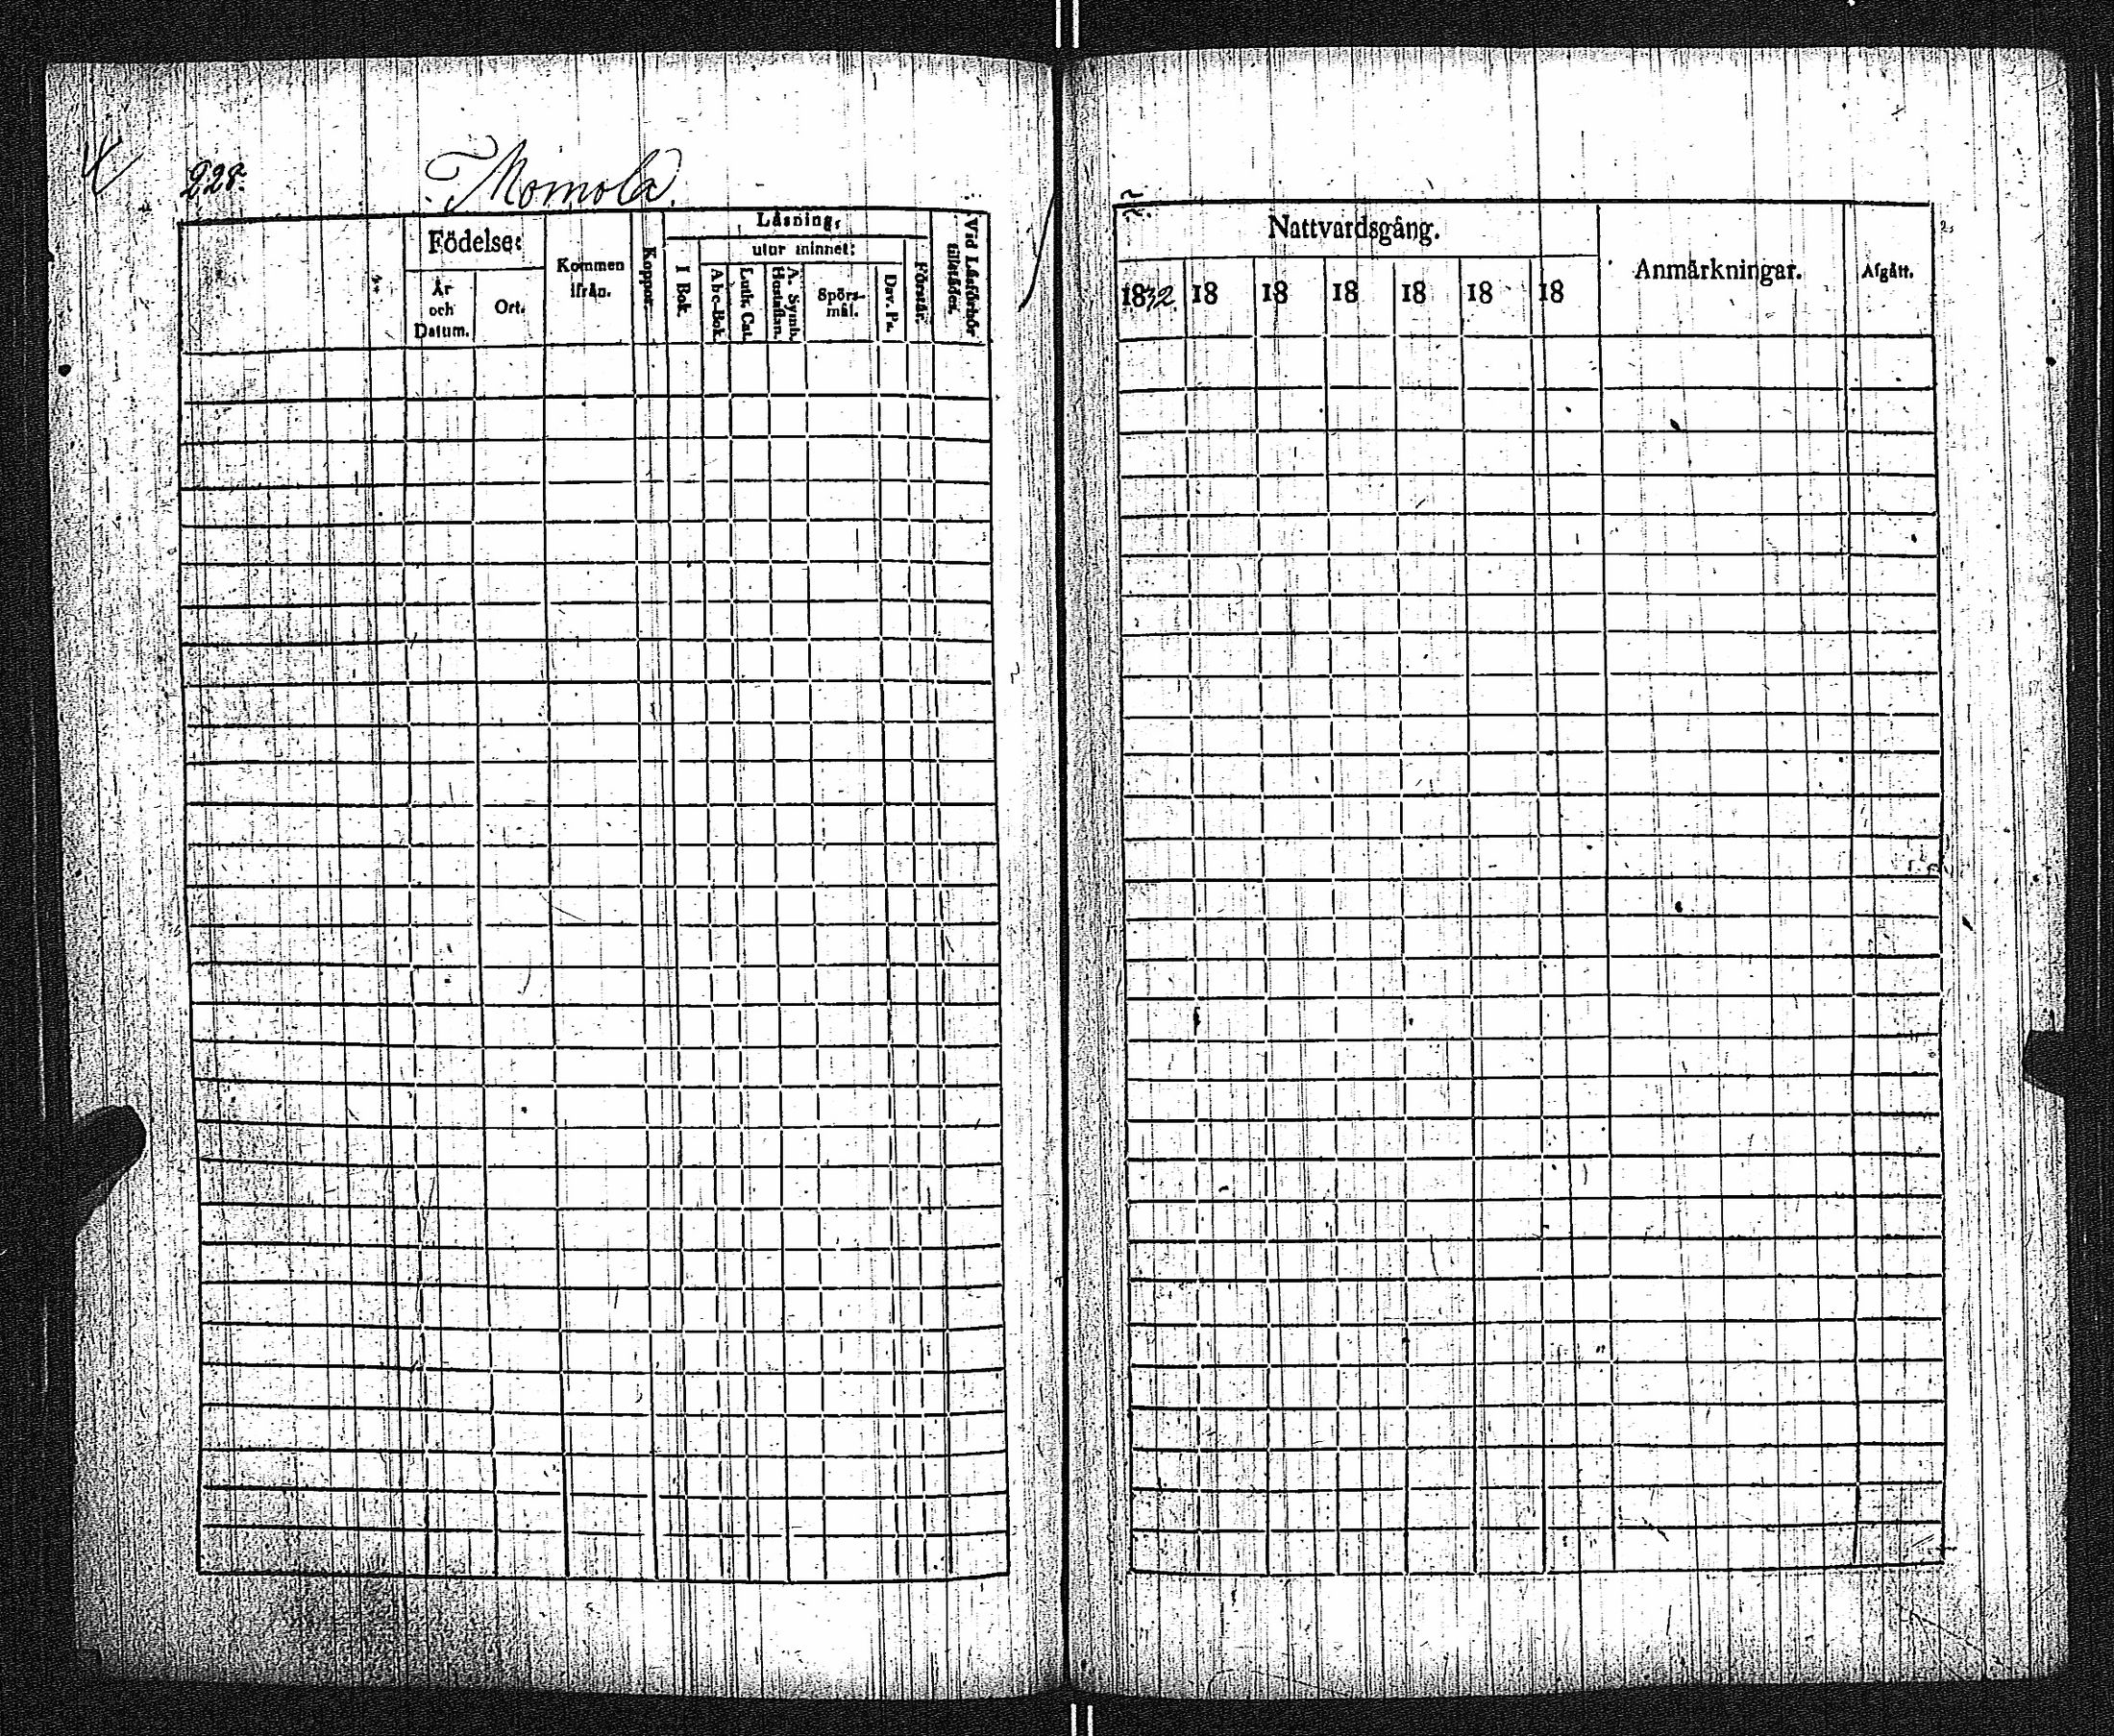 228.
Momola.
Födelse:
År och Datum.
Ort.
Kommen ifrån.
Koppor.
Läsning,
I Bok.
utur minnet:
Abc-Bok.
Luth. Cat.
A. Symb. Hustaflan.
Spörs-mål.
Dav. Ps.
Förstår.
Vid Läsförhör tillstädes.
Nattvardsgång.
1832 18 18 18 18 18 18
Anmärkningar.
Afgått.